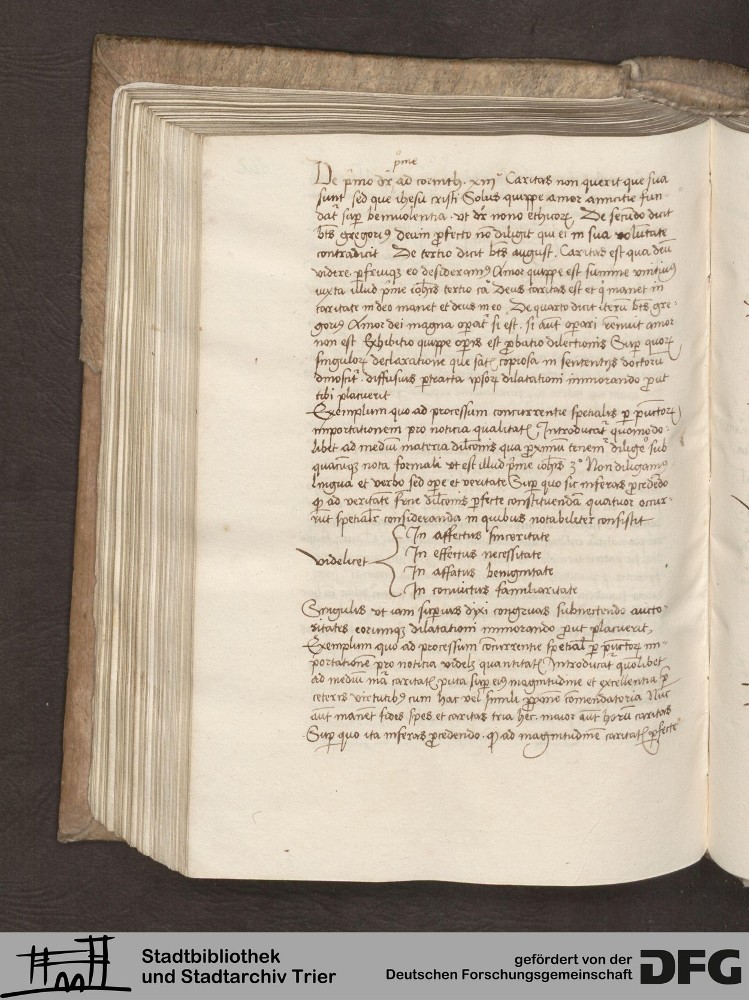 p̊me
De p̊mo dr̄ ad corinth. xiijº Caritas non querit que sua
sunt sed que ihesu cristi Solus quippe amor amicitie fun
dat̄ sup̄ beniuolentia . vt dr̄ nono ethicoꝝ . De secūdo dicit
bt̄s gregoriꝰ deum ꝓfecto nō diligit qui ei in sua voluntate
contradicit De tertio dicit bt̄s august. Caritas est qua deū
videre ꝑfruiqꝫ eo desideramꝰ Amor quippe est summe vnitiuꝰ
iuxta illud p̊me ioh̄is tertio cā Deus caritas est et q̇ manet in
caritate in deo manet et deus in eo . De quarto dicit iterū bt̄s gre-
goriꝰ Amor dei magna oꝑat̄ si est . si aut̄ oꝑari rēnuit amor
non est Exhibitio quippe oꝑis est ꝓbatio dilectionis Sup̄ quoꝝ
singuloꝝ declaratione que sat̄ copiosa in sententijs doctorū
dinoscit̄ . diffusius ꝑtracta ipsoꝝ dilatationi immorando ꝓut
tibi placuerit
Exemplum quo ad processum concurrentie specialis ꝑ pūctoꝝ
importationem pro noticia qualitat̄ Introducat̄ quomodo-
libet ad mediū materia dilc̄onis qua ꝓximū tenem̄ diligē sub
quacūqꝫ nota formali vt est illud p̊me ioh̄is 3º Non diligamꝰ
lingua et verbo sed oꝑe et veritate Sup̄ quo sic inferas ꝓcedēdo
ꝙ ad veritatē dilc̄onis ꝑfecte constituendā quatuor occur-
rūt specialr̄ consideranda in quibus notabiliter consistit
videlicet
In affectus sinceritate
In effectus necessitate
In affatus benignitate
In conuictus familiaritate
Singulis vt iam suꝑius dixi congruas subnectendo aucto-
ritates eorumqꝫ dilatationi immorando ꝓut placuerit,
Exemplum quo ad processum cōcurrentie spetial̄ ꝑ pūctoꝝ im-
portationē pro noticia videlꝫ quantitat̄ Introducat̄ quolibet
ad mediū mā caritat̄ puta sup̄ eiꝰ magnitudine et excellentia p̄
ceteris virtutibꝰ cum hac vel simili ꝓp̄one cōmendatoria Nūc
aut̄ manet fides spes et caritas tria hec. maior aut̄ horū caritas
Sup̄ quo ita inferas ꝓcedendo . ꝙ ad magnitudinē caritat̄ ꝑfecte
Stadtbibliothek
und Stadtarchiv Trier
gefördert von der
Deutschen Forschungsgemeinschaft
DFG